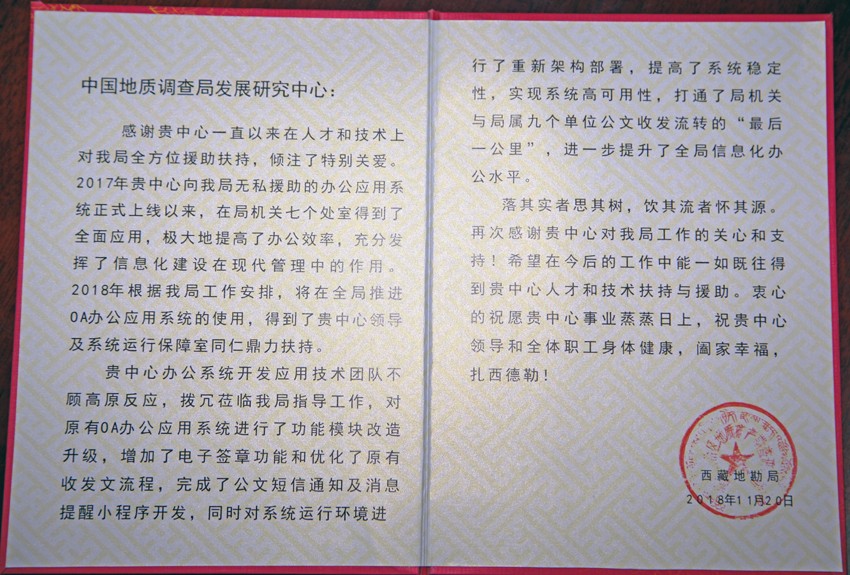 中国地质调查局发展研究中心：
感谢贵中心一直以来在人才和技术上
对我局全方位援助扶持，倾注了特别关爱。
2017年贵中心向我局无私援助的办公应用系
统正式上线以来，在局机关七个处室得到了
全面应用，极大地提高了办公效率，充分发
挥了信息化建设在现代管理中的作用。
2018年根据我局工作安排，将在全局推进
OA办公应用系统的使用，得到了贵中心领导
及系统运行保障室同仁鼎力扶持。
贵中心办公系统开发应用技术团队不
顾高原反应，拨冗莅临我局指导工作，对
原有OA办公应用系统进行了功能模块改造
升级，增加了电子签章功能和优化了原有
收发文流程，完成了公文短信通知及消息
提醒小程序开发，同时对系统运行环境进
行了重新架构部署，提高了系统稳定
性，实现系统高可用性，打通了局机关
与局属九个单位公文收发流转的“最后
一公里”，进一步提升了全局信息化办
公水平。
落其实者思其树，饮其流者怀其源。
再次感谢贵中心对我局工作的关心和支
持！希望在今后的工作中能一如既往得
到贵中心人才和技术扶持与援助。衷心
的祝愿贵中心事业蒸蒸日上，祝贵中心
领导和全体职工身体健康，阖家幸福，
扎西德勒！
西藏地勘局
2018年11月20日